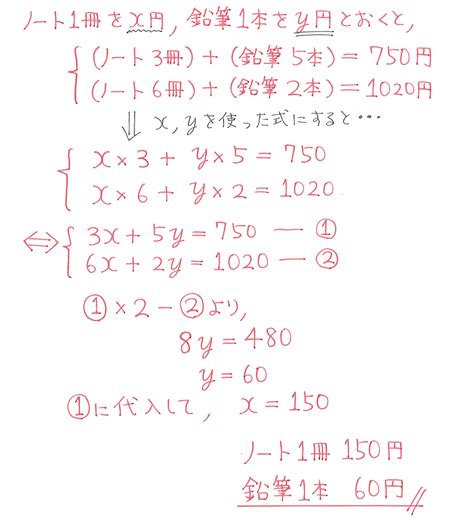 ノート1冊をx円, 鉛筆1本をy円とおくと,
(ノート3冊) + (鉛筆5本) = 750円
(ノート6冊) + (鉛筆2本) = 1020円
⇓ x, yを使った式にすると…
x×3 + y×5 = 750
x×6 + y×2 = 1020
⇔ 3x + 5y = 750 — ①
6x + 2y = 1020 — ②
①×2 − ②より,
8y = 480
y = 60
①に代入して, x = 150
ノート1冊 150円
鉛筆1本 60円